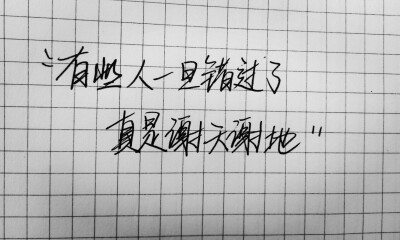 “有些人一旦错过了
真是谢天谢地”